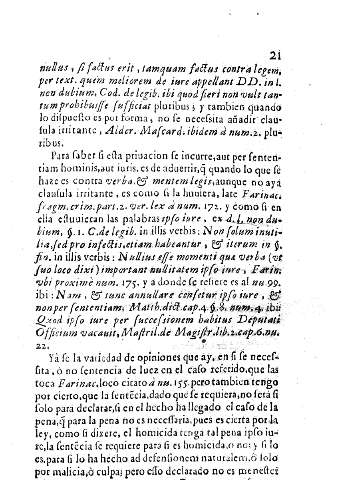 21
nullus, si factus erit, tamquam factus contra legem,
per text. quem meliorem de iure appellant DD. in l.
non dubium, Cod. de legib. ibi quod fieri non vult tan-
tum prohibuisse sufficiat pluribus; y tambien quando
lo dispuesto es por forma, no se necesita añadir clau-
sula irritante, Alder. Mascard. ibidem à num. 2. plu-
ribus.
Para saber si esta priuacion se incurre, aut per senten-
tiam hominis, aut iuris, es de aduertir, q̃ quando lo que se
haze es contra verba, & mentem legis, aunque no aya
clausula irritante, es como si la huuiera, late Farinac.
fragm. crim. part. 2. ver. lex à num. 172. y como si en
ella estuuieran las palabras ipso iure, ex d. l. non du-
bium, §. 1. C. de legib. in illis verbis: Non solum inuti-
lia, sed pro infectis, etiam habeantur, & iterum in §.
fin. in illis verbis: Nullius esse momenti qua verba (ve
suo loco dixi) important nullitatem ipso iure, Farin.
vbi proximè num. 175. y a donde se refiere es al nu 99.
ibi: Nam, & tunc annullare censetur ipso iure, &
non per sententiam, Matth. dict. cap. 4. §. 8. num. 4. ibi
Quod ipso iure per successionem habitus Deputati
Officium vacauit, Mastril. de Magistr. lib. 2. cap. 6. nu.
22.
Yà se la variedad de opiniones que ay, en si se neces-
sita, ò no sentencia de luez en el caso referido, que las
toca Farinac, loco citato à nu. 155. pero tambien tengo
por cierto, que la sentẽcia, dado que se requiera, no serà si
solo para declarar, si en el hecho ha llegado el caso de la
pena, q̃ para la pena no es necessaria, pues es cierta por la
ley, como si dixere, el homicida tenga tal pena ipso iu-
re, la sentẽcia se requiere para si es homicida, o no; y si lo
es, para si lo ha hecho ad defensionem naturalem, ò solo
por malicia, ò culpa; pero esso declarado no es menester